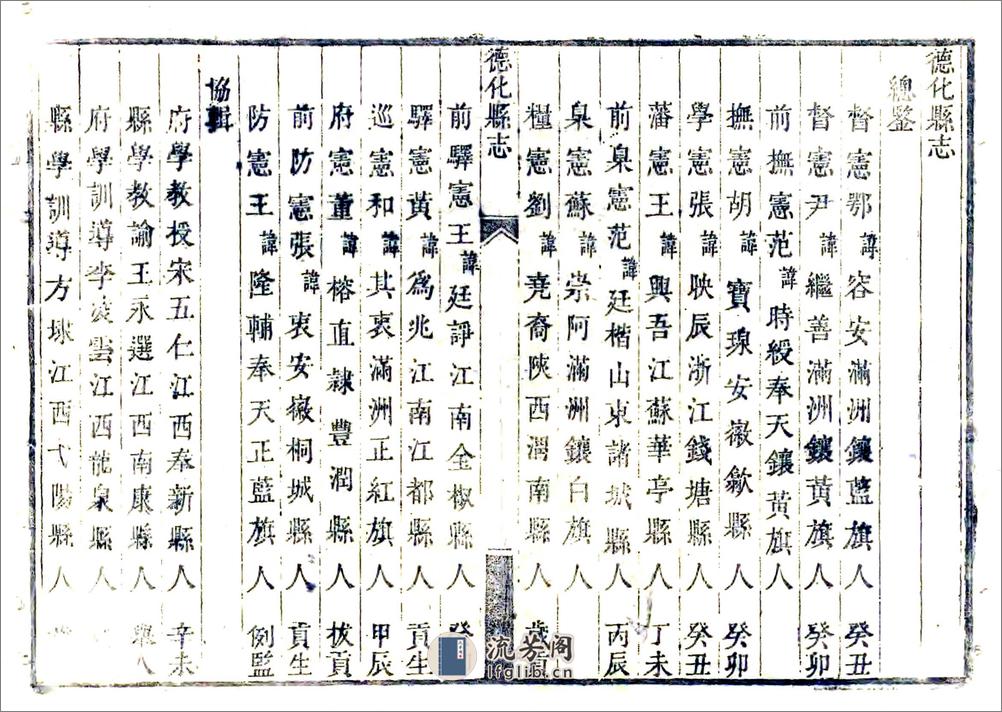 德化縣志
總鑒
督憲鄂諱容安滿洲鑲藍旗人癸丑
督憲尹諱繼善滿洲鑲黃旗人癸卯
前撫憲范諱時綬奉天鑲黃旗人
撫憲胡諱寶瑔安徽歙縣人癸卯
學憲張諱映辰浙江錢塘縣人癸丑
藩憲王諱興吾江蘇華亭縣人丁未
前臬憲范諱廷楷山東諸城縣人丙辰
臬憲蘇諱崇阿滿洲鑲白旗人
糧憲劉諱堯裔陝西渭南縣人歲貢
德化縣志
前驛憲王諱廷諍江南全椒縣人癸
驛憲黃諱為兆江南江都縣人貢生
巡憲和諱其衷滿洲正紅旗人甲辰
府憲董諱榕直隸豐潤縣人拔貢
前防憲張諱衷安徽桐城縣人貢生
防憲王諱隆輔奉天正藍旗人例監
協輯
府學教授宋五仁江西奉新縣人辛未
縣學教諭王永選江西南康縣人舉人
府學訓導李凌雲江西龍泉縣人
縣學訓導方球江西弋陽縣人
流芳阁
lfglib.cn